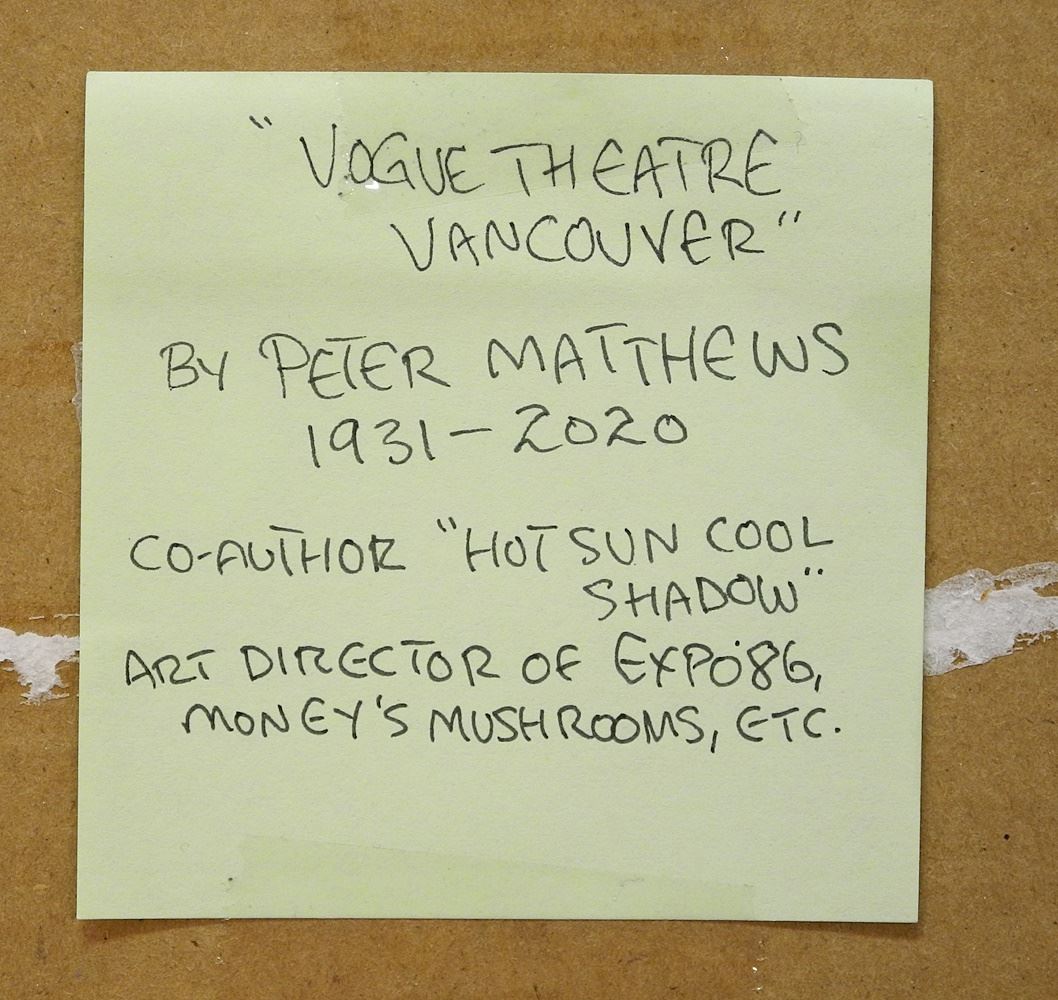 "VOGUE THEATRE
VANCOUVER"
BY PETER MATTHEWS
1931-2020
CO-AUTHOR "HOT SUN COOL
SHADOW"
ART DIRECTOR OF EXPO'86,
MONEY'S MUSHROOMS, ETC.